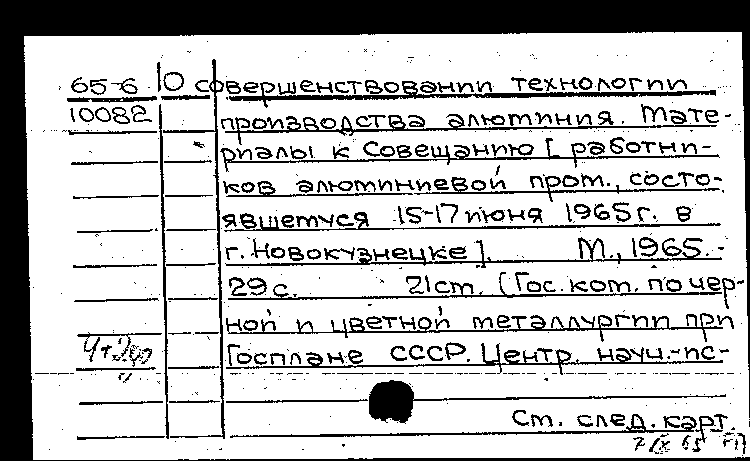 65-6 О совершенствовании технологии
10082 производства алюминия. Мате-
риалы к Совещанию [ работни-
ков алюминиевой пром., состо-
явшемуся 15-17 июня 1965 г. в
г. Новокузнецке ]. М., 1965.-
29 с. 21 см. (Гос. ком. по чер-
ной и цветной металлургии при
Госплане СССР. Центр. науч.-ис-
Ст. след. карт.